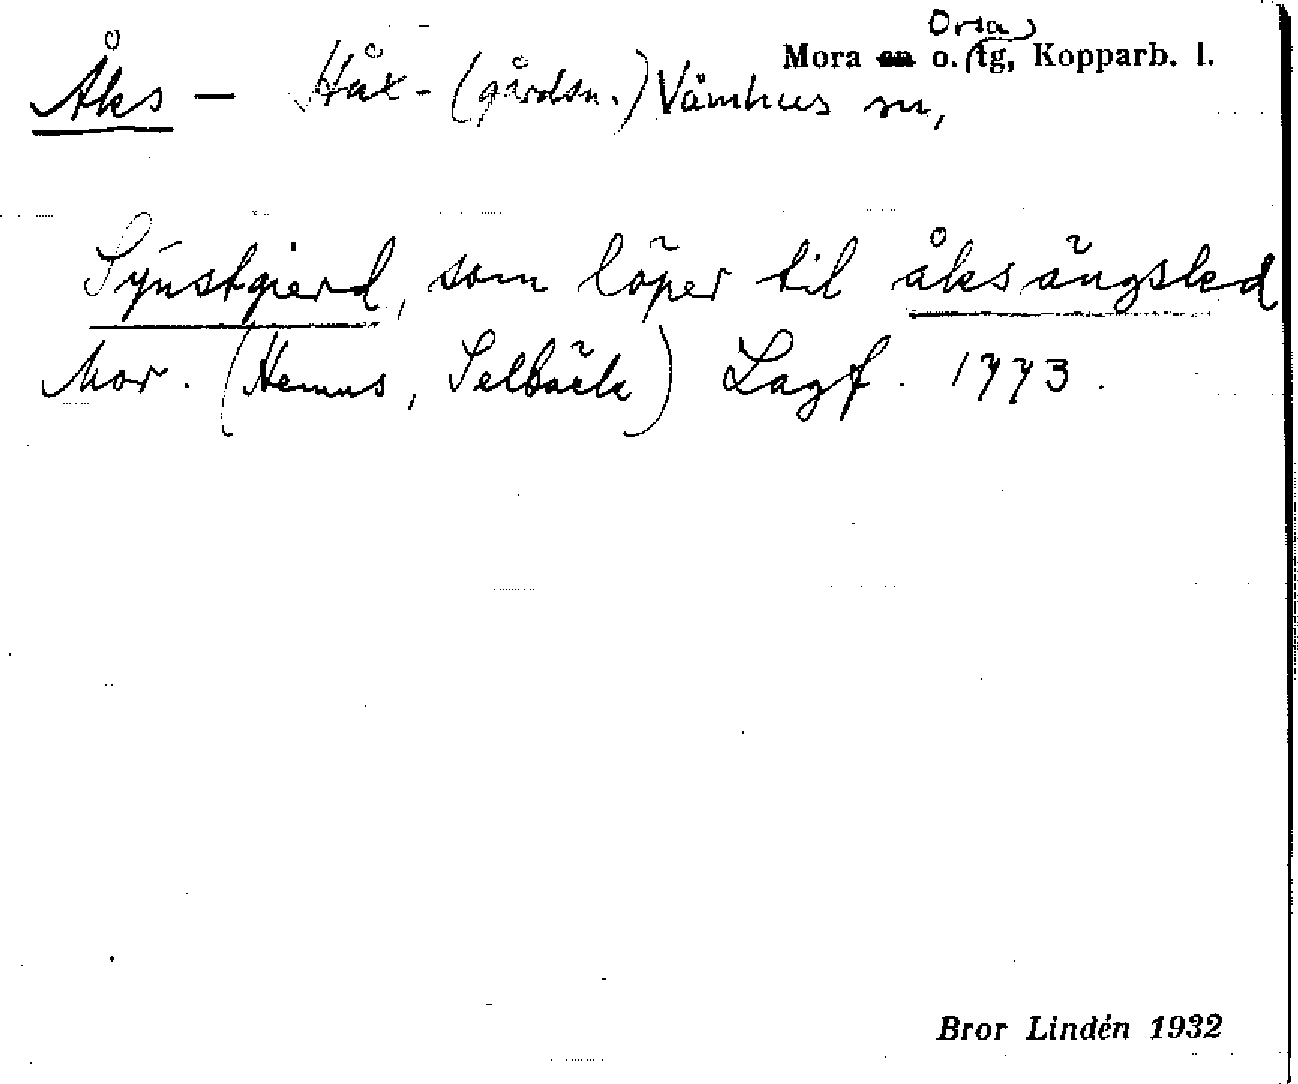 Orsa
Mora sn o. tg, Kopparb. l.
Åks – Håx- (gårdsn.) Våmhus sn,
Synstgierd, som löper til åks ängsled
Mor. (Hemus, Selbäck) Lagf. 1773.
Bror Lindén 1932